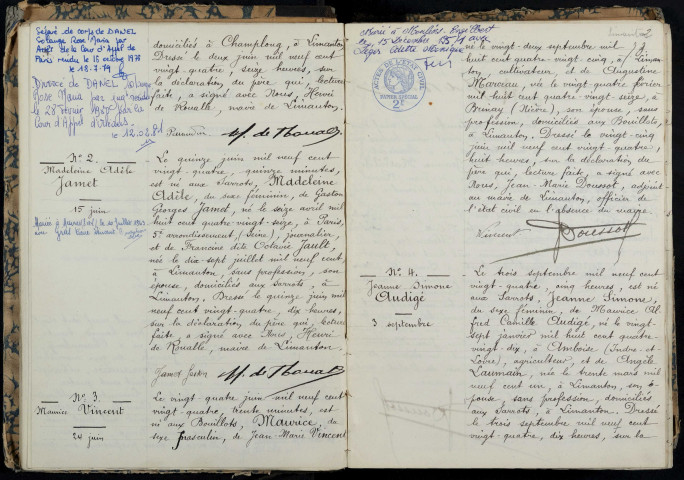 Séparé de corps de DANEL
Solange Rose Maria par
Arrêt de la Cour d'Appel de
Paris rendu le 18 octobre 1978
le 18-7-79
Divorcé de DANEL Solange
Rose Maria par
le 28 Février 1981 par la
Cour d'Appel d'Orléans
le 12.02.81
domiciliés à Champlong, à Limanton
Dressé le deux juin mil neuf cent
vingt-quatre, seize heures, sur
la déclaration du père qui, lecture
faite, a signé avec Nous, Henri
de Roualle, maire de Limanton.
N° 2.
Madeleine Adèle
Jamet
15 juin
Le quinze juin mil neuf cent
vingt-quatre, quinze minutes,
est né aux Sarrots, Madeleine
Adèle, du sexe féminin, de Gaston
Georges Jamet, né le seize avril mil
huit cent quatre-vingt-seize, à Paris,
5e arrondissement, (Seine), journalier
et de Francine dite Octavie Jault,
née le dix-sept juillet mil neuf cent,
à Limanton, sans profession, son
épouse, domiciliés aux Sarrots, à
Limanton. Dressé le quinze juin mil
neuf cent vingt-quatre, dix heures,
sur la déclaration du père qui lecture
faite a signé avec Nous Henri
de Roualle, maire de Limanton.
Jamet Gaston
N° 3.
Maurice Vincent
24 juin
Le vingt-quatre juin mil neuf cent
vingt-quatre, trente minutes, est
né aux Bouillots, Maurice, du
sexe masculin, de Jean-Marie Vincent
le 15 décembre 1951 avec
Léger Odette Monique
ACTES DE L'ÉTAT CIVIL
PAPIER SPÉCIAL
2F
2
né le vingt-deux septembre mil
huit cent quatre-vingt-cinq, à Liman-
ton, cultivateur, et de Augustine
Marceau, née le vingt-quatre février
mil huit cent quatre-vingt-seize, à
Brinay (Nièvre), son épouse, sans
profession, domiciliés aux Bouillots,
à Limanton. Dressé le vingt-cinq
juin mil neuf cent vingt-quatre,
huit heures, sur la déclaration du
père qui, lecture faite, a signé avec
Nous, Jean-Marie Doussot, adjoint
au maire de Limanton, officier de
l'état civil en l'absence du maire.
Vincent
Doussot
N° 4.
Jeanne Simone
Audigé
3 septembre
Le trois septembre mil neuf cent
vingt-quatre, cinq heures, est né
aux Sarrots, Jeanne Simone,
du sexe féminin, de Maurice Al-
fred Camille Audigé, né le vingt-
sept janvier mil huit cent quatre-
vingt-dix, à Amboise (Indre-et-
Loire), agriculteur, et de Angèle
Laumain, née le trente mars mil
neuf cent un, à Limanton, son é-
pouse, sans profession, domiciliés
aux Sarrots, à Limanton. Dressé
le trois septembre mil neuf cent
vingt-quatre, dix heures, sur la